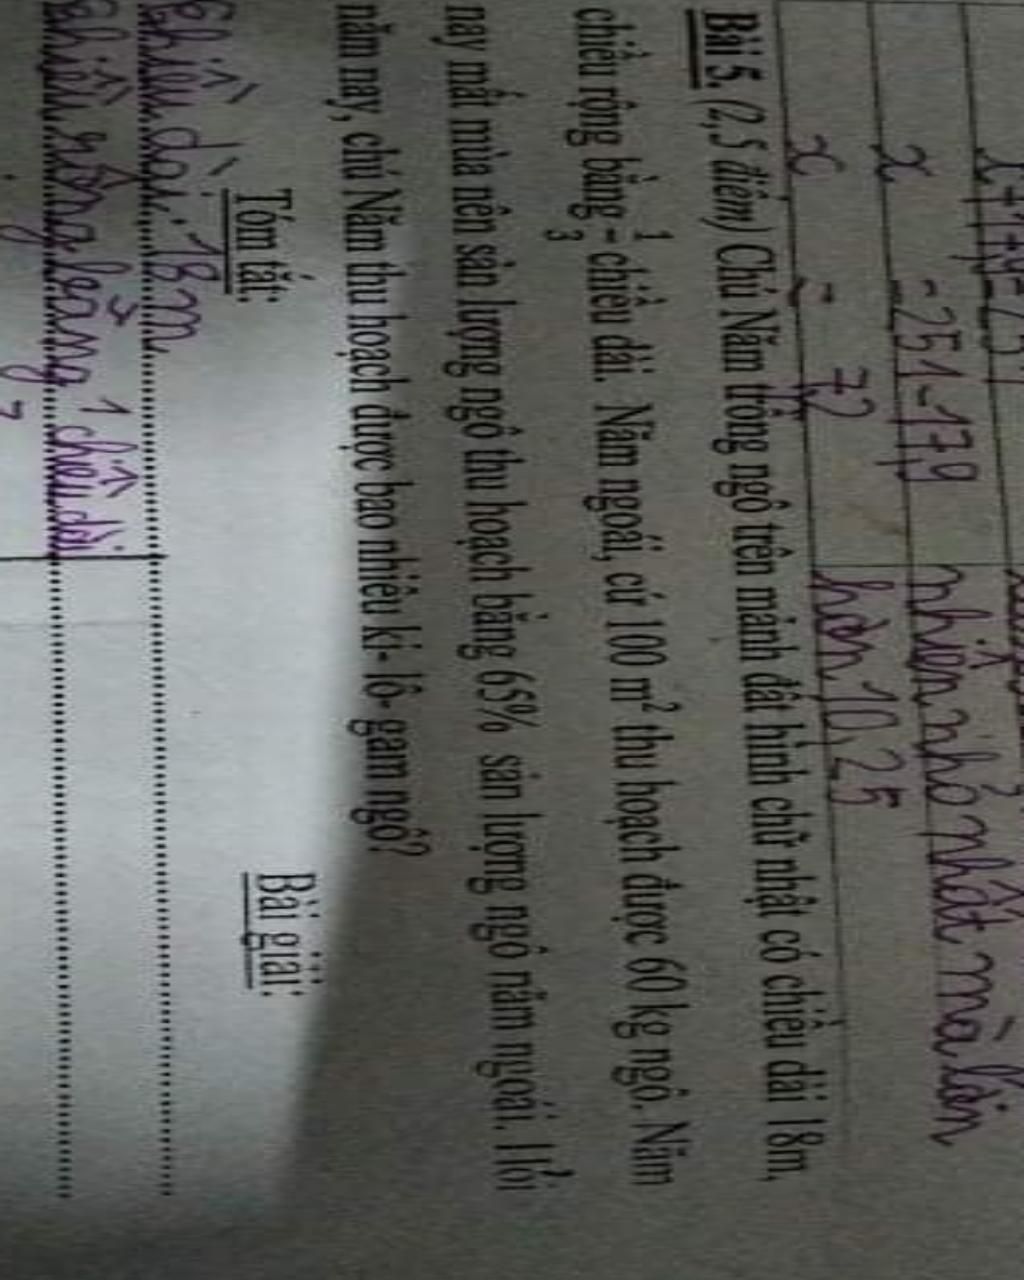 x+17,9=25,1
x = 25,1-17,9
nhiên nhỏ nhất mà lớn
x = 7,2
hơn 10,25
Bài 5. (2,5 điểm) Chú Năm trồng ngô trên mảnh đất hình chữ nhật có chiều dài 18m,
chiều rộng bằng 1/3 chiều dài. Năm ngoái, cứ 100 m² thu hoạch được 60 kg ngô. Năm
nay mất mùa nên sản lượng ngô thu hoạch bằng 65% sản lượng ngô năm ngoái. Hỏi
năm nay, chú Năm thu hoạch được bao nhiêu ki- lô- gam ngô?
Tóm tắt:
Bài giải:
Chiều dài: 18m
Chiều rộng bằng 1/3 chiều dài